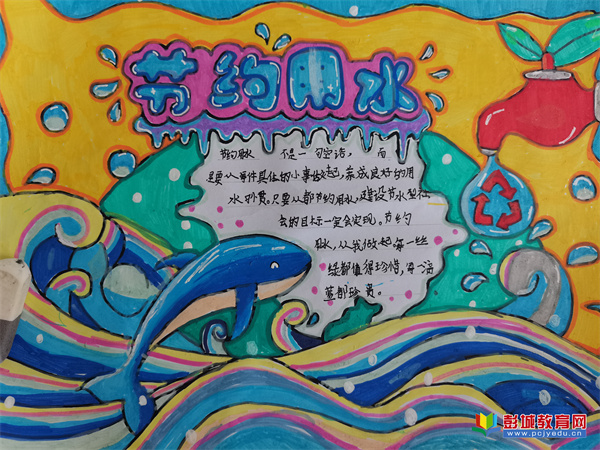 节约用水
节约用水 不是一句空话, 而
是要从每件具体的小事做起,养成良好的用
水习惯。只要人人都节约用水,建设节水型社
会的目标一定会实现。节约
用水,从我做起每一丝
绿都值得珍惜,每一滴
蓝都珍贵。
彭城教育网
www.pcjyedu.cn